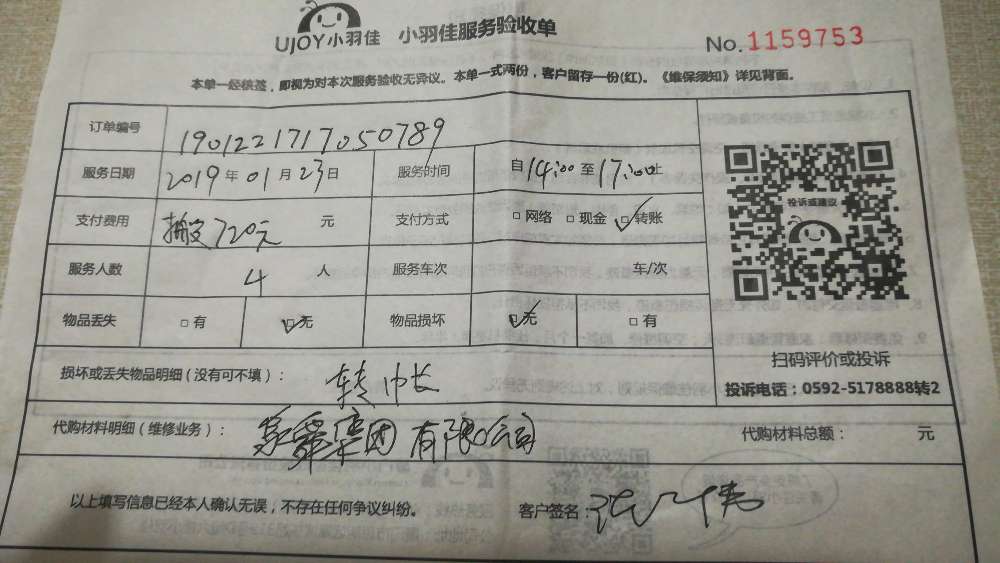 UJOY小羽佳 小羽佳服务验收单
No.1159753
本单一经核签，即视为对本次服务验收无异议。本单一式两份，客户留存一份(红)。《维保须知》详见背面。
订单编号 1901221717050789
服务日期 2019年01月23日 服务时间 自14:00至17:00止
支付费用 搬运720元 元 支付方式 □网络 □现金 ☑转账
服务人数 4 人 服务车次 车/次
物品丢失 □有 ☑无 物品损坏 ☑无 □有
投诉或建议
扫码评价或投诉
投诉电话：0592-5178888转2
损坏或丢失物品明细（没有可不填）： 转帐
代购材料明细（维修业务）： 集团有限公司 代购材料总额： 元
以上填写信息已经本人确认无误，不存在任何争议纠纷。 客户签名：